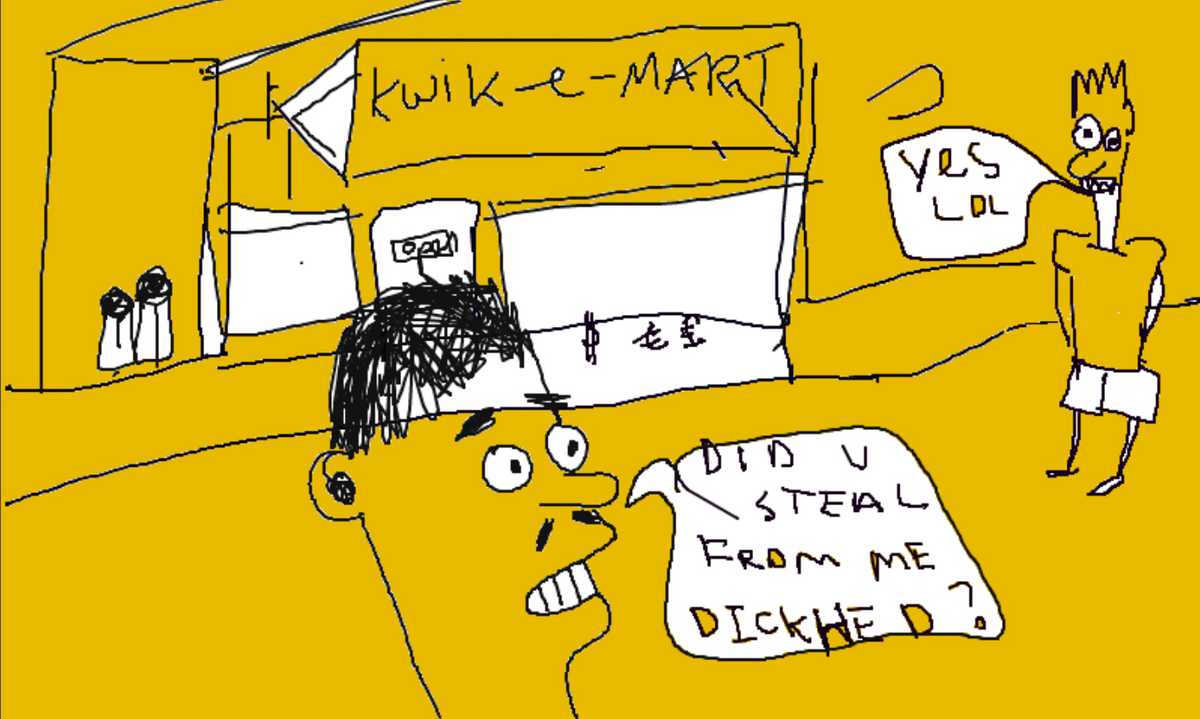 KWIK-e-MART
Open
$ € £
YES
LOL
DID U
STEAL
FROM ME
DICKHED?